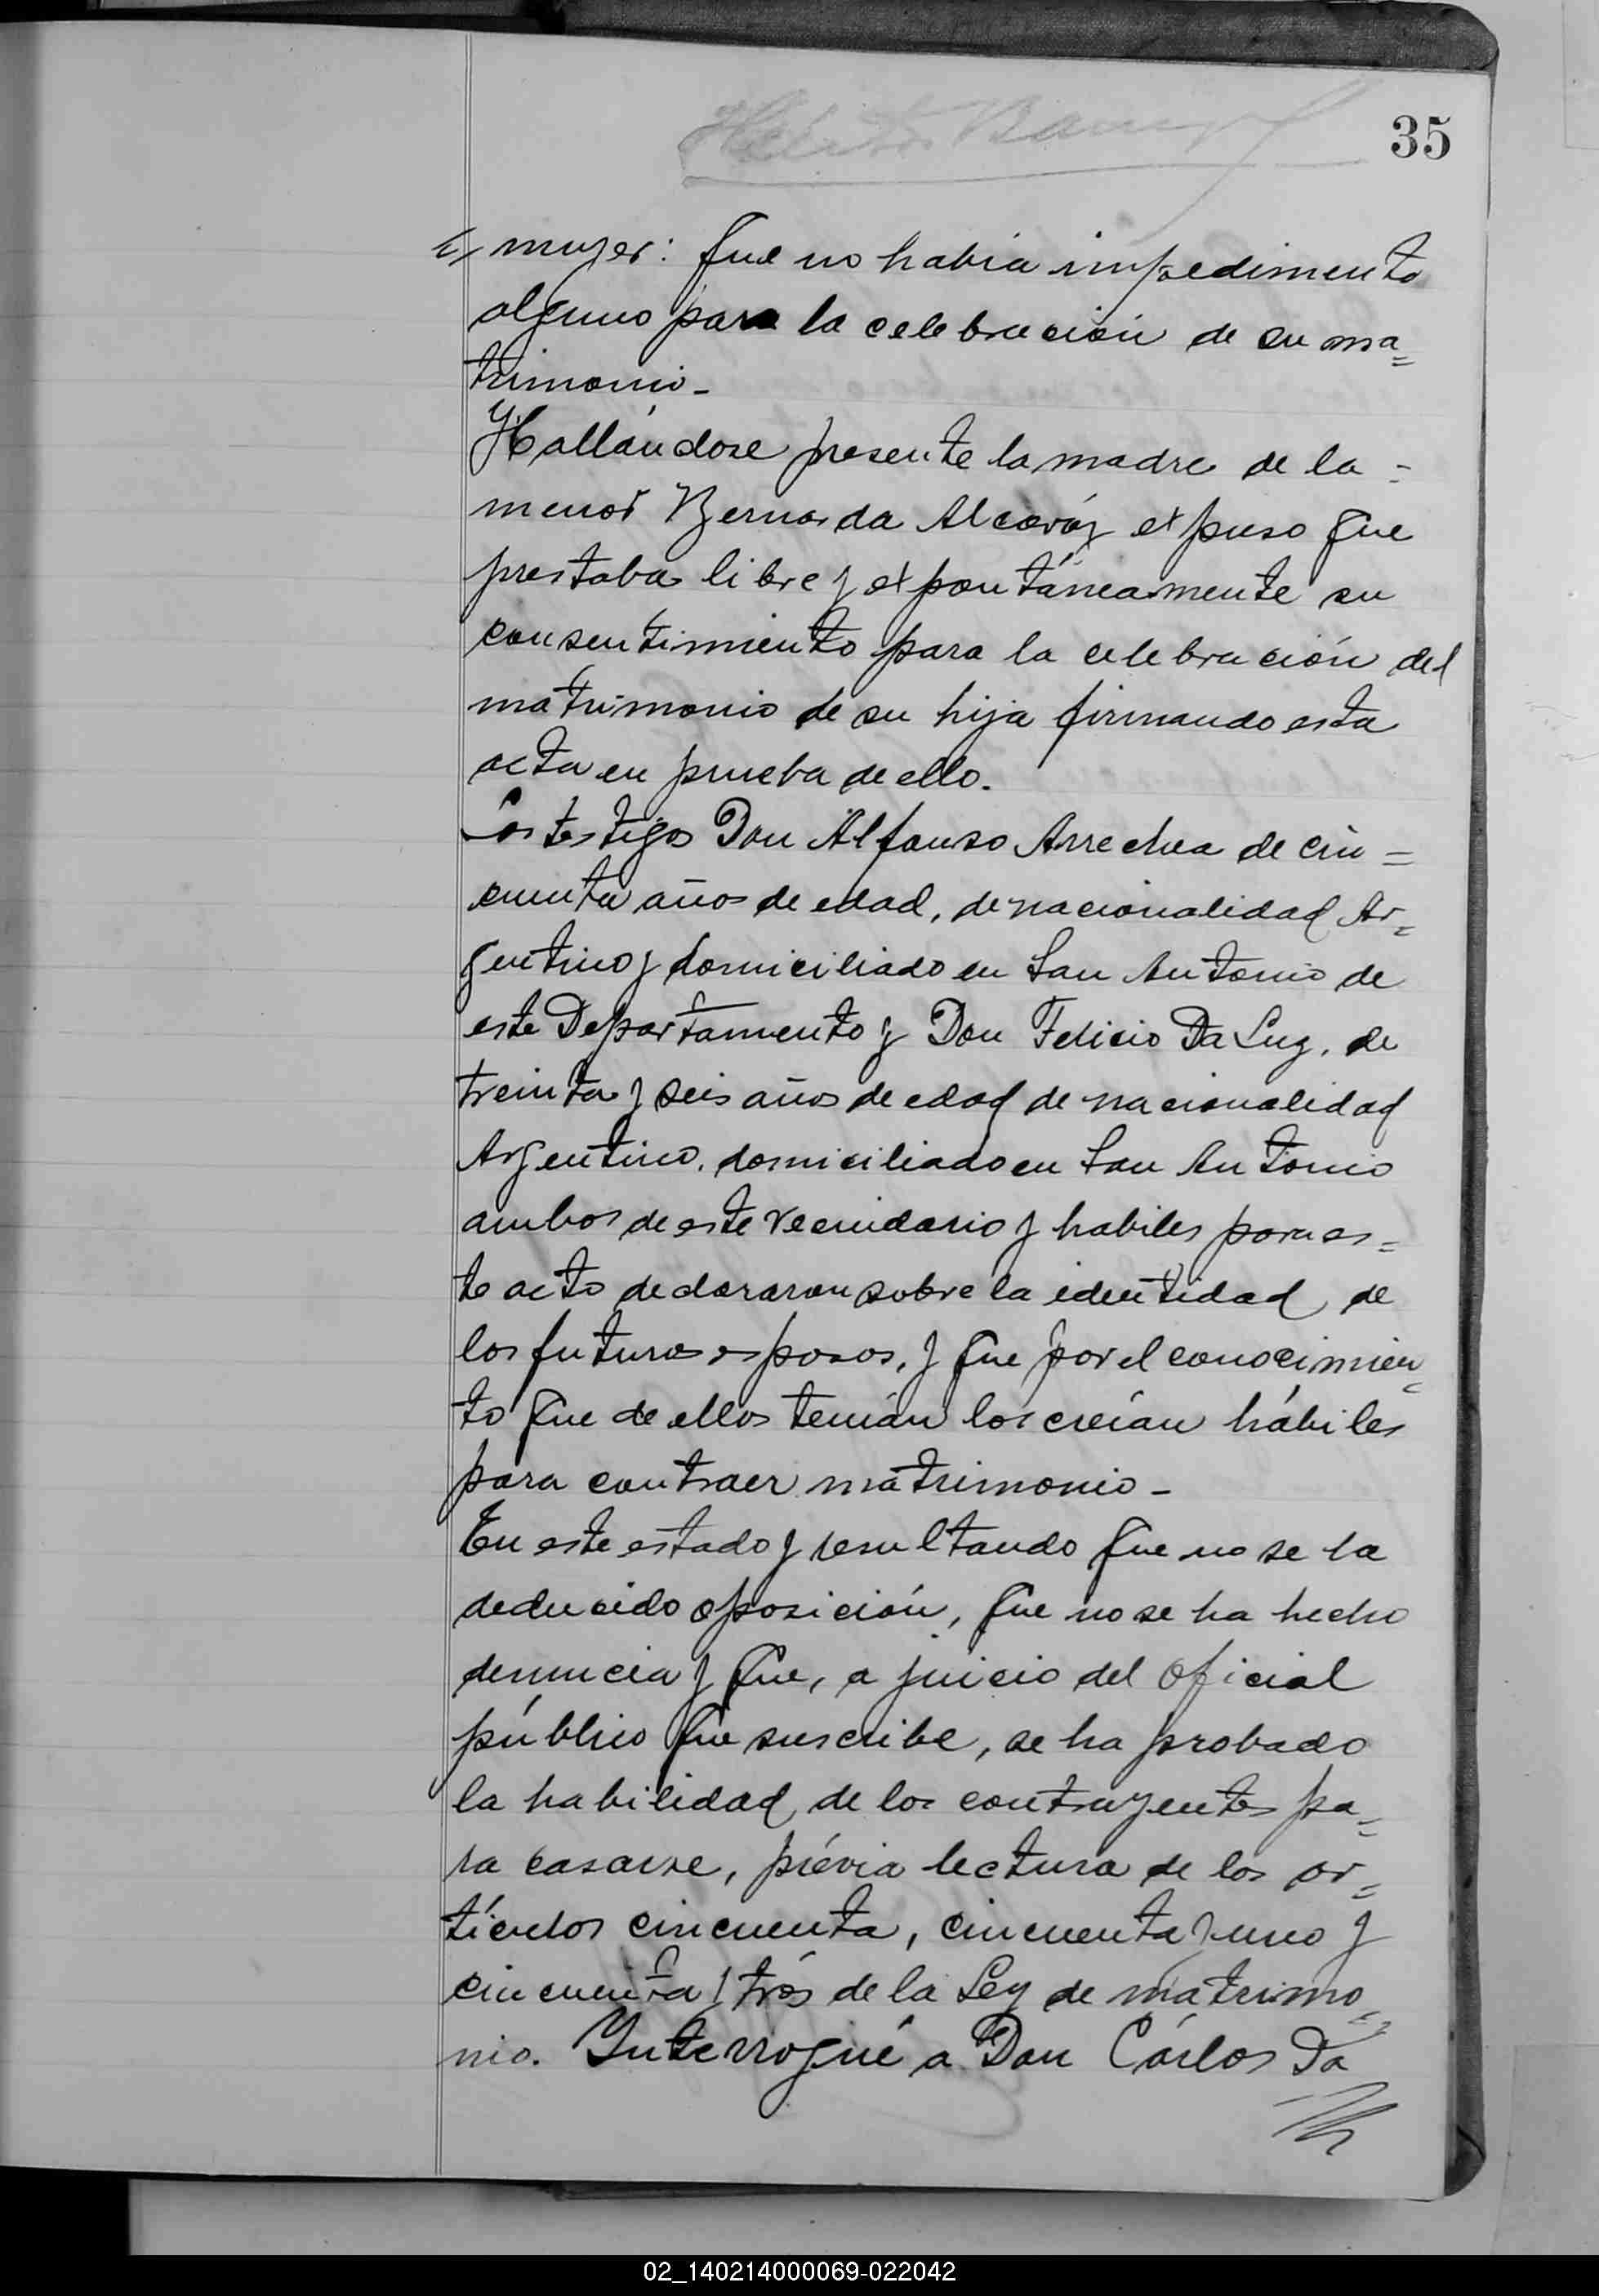 35
mujer: que no había impedimento
alguno para la celebración de su ma=
trimonio-
Hallándose presente la madre de la =
menor Bernarda Alcaráz expuso que
prestaba libre y expontáneamente su
consentimiento para la celebración del
matrimonio de su hija firmando esta
acta en prueba de ello.
Los testigos Don Alfonso Arrechea de cin=
cuenta años de edad, de nacionalidad Ar=
gentino y domiciliado en San Antonio de
este Departamento y Don Felicio Da Luz, de
treinta y seis años de edad de nacionalidad
Argentino, domiciliado en San Antonio
ambos de este vecindario y habiles para es=
te acto declararon sobre la identidad de
los futuros esposos, y que por el conocimien=
to que de ellos tenían los creían hábiles
para contraer matrimonio-
En este estado y resultando que no se ha
deducido oposición, que no se ha hecho
denuncia y que, a juicio del oficial
público que suscribe, se ha probado
la habilidad de los contrayentes pa=
ra casarse, prévia lectura de los ar=
tículos cincuenta, cincuenta y uno y
cincuenta y trés de la Ley de matrimo=
nio. Interrogué a Don Cárlos Da
02_140214000069-022042